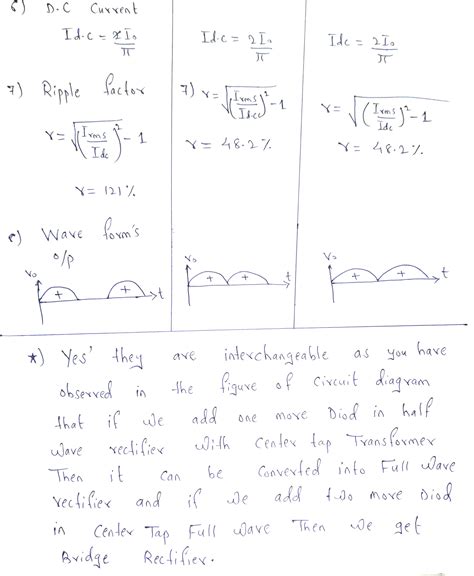 6) D.C Current
Id.c = xI₀/π
Id.c = 2I₀/π
Idc = 2I₀/π
7) Ripple factor
r = √(Irms/Idc)² - 1
r = 121%
7) r = √(Irms/Idcc)² - 1
r = 48.2%
r = √(Irms/Idc)² - 1
r = 48.2%
8) Wave form's
o/p
V₀ + + t
V₀ + + t
V₀ + + t
*) Yes' they are interchangeable as you have
observed in the figure of circuit diagram
that if we add one more Diod in half
wave rectifier with center tap Transformer
Then it can be converted into Full wave
rectifier and if we add two more Diod
in Center Tap Full wave Then we get
Bridge Rectifier.